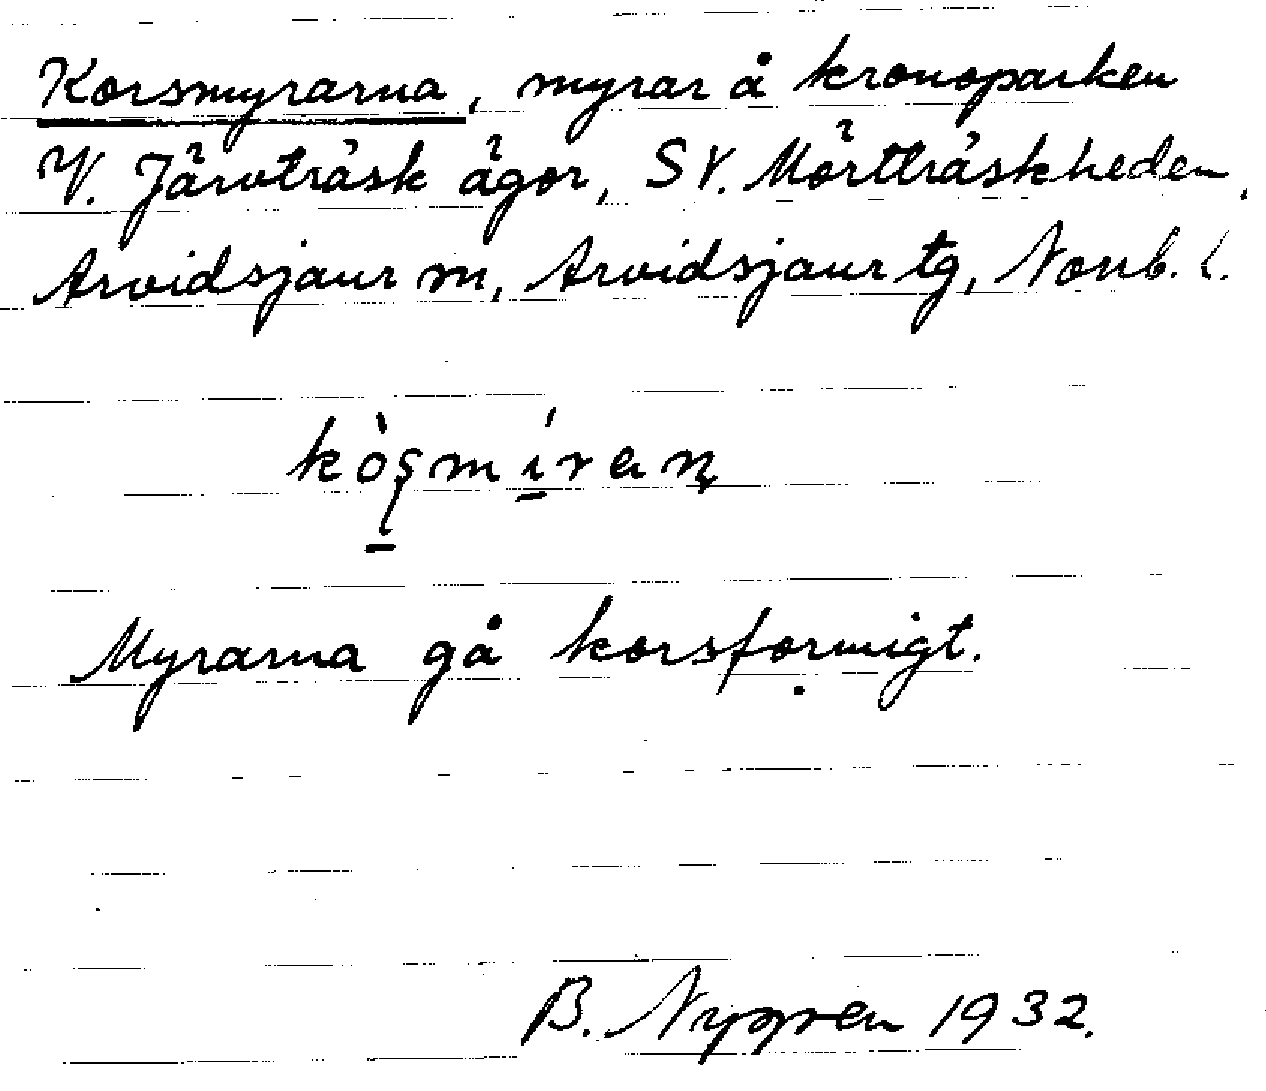 Korsmyrarna, myrar å kronoparken
V. Järvträsk ägor, SV. Mörtträskheden,
Arvidsjaur sn, Arvidsjaur tg, Norrb. l.
kòʂmíraɳ
Myrarna gå korsformigt.
B. Nygren 1932.